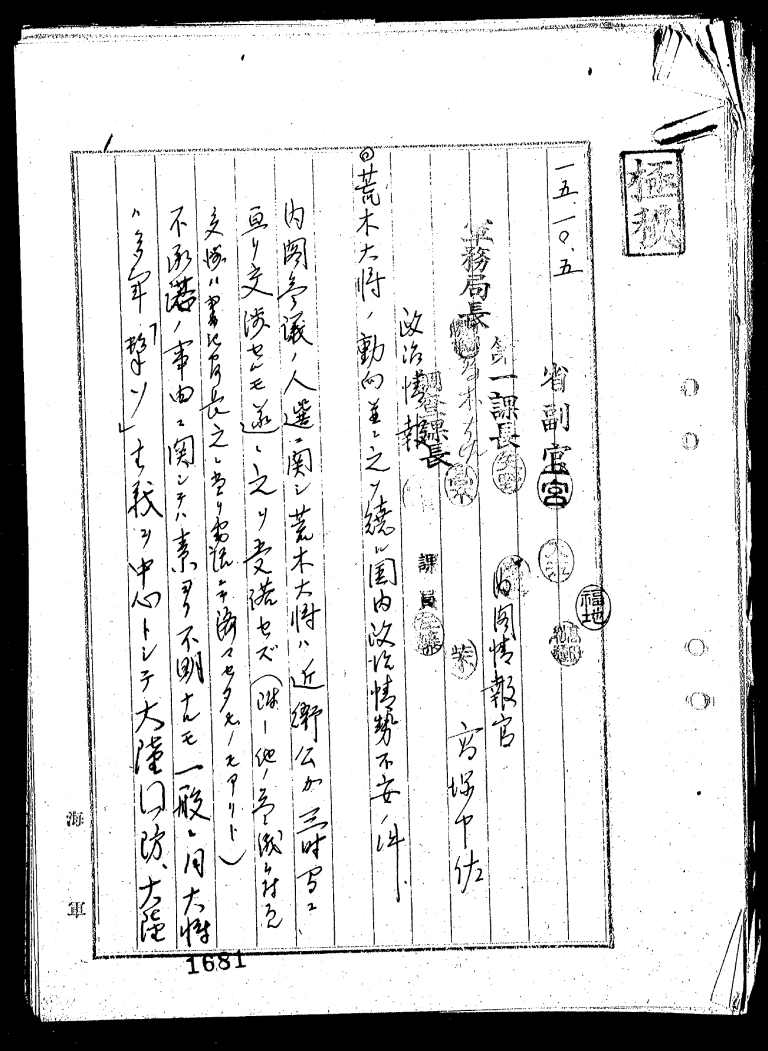 極秘
一五、一〇、五
省副官
宮
福地
第一課長
矢野
内閣情報官
軍務局長
高塚中佐
柴
政治情報
調査課長
課員
◎荒木大将ノ動向並ニ之ヲ繞ル国内政治情勢不安ノ件
内閣参議ノ人選ニ関シ荒木大将ハ近衛公ガ三時間ニ
亘リ交渉セルモ遂ニ之ヲ受諾セズ(註ー他ノ参議ニ対スル
交渉ハ書記官長之ニ当リ電話ニテ済マセタモノモアリト)
不承諾ノ事由ニ関シテハ素ヨリ不明ナルモ一般ニ同大将
ハ多年「撃ソ」主義ヲ中心トシテ大陸国防、大陸
海軍
1681